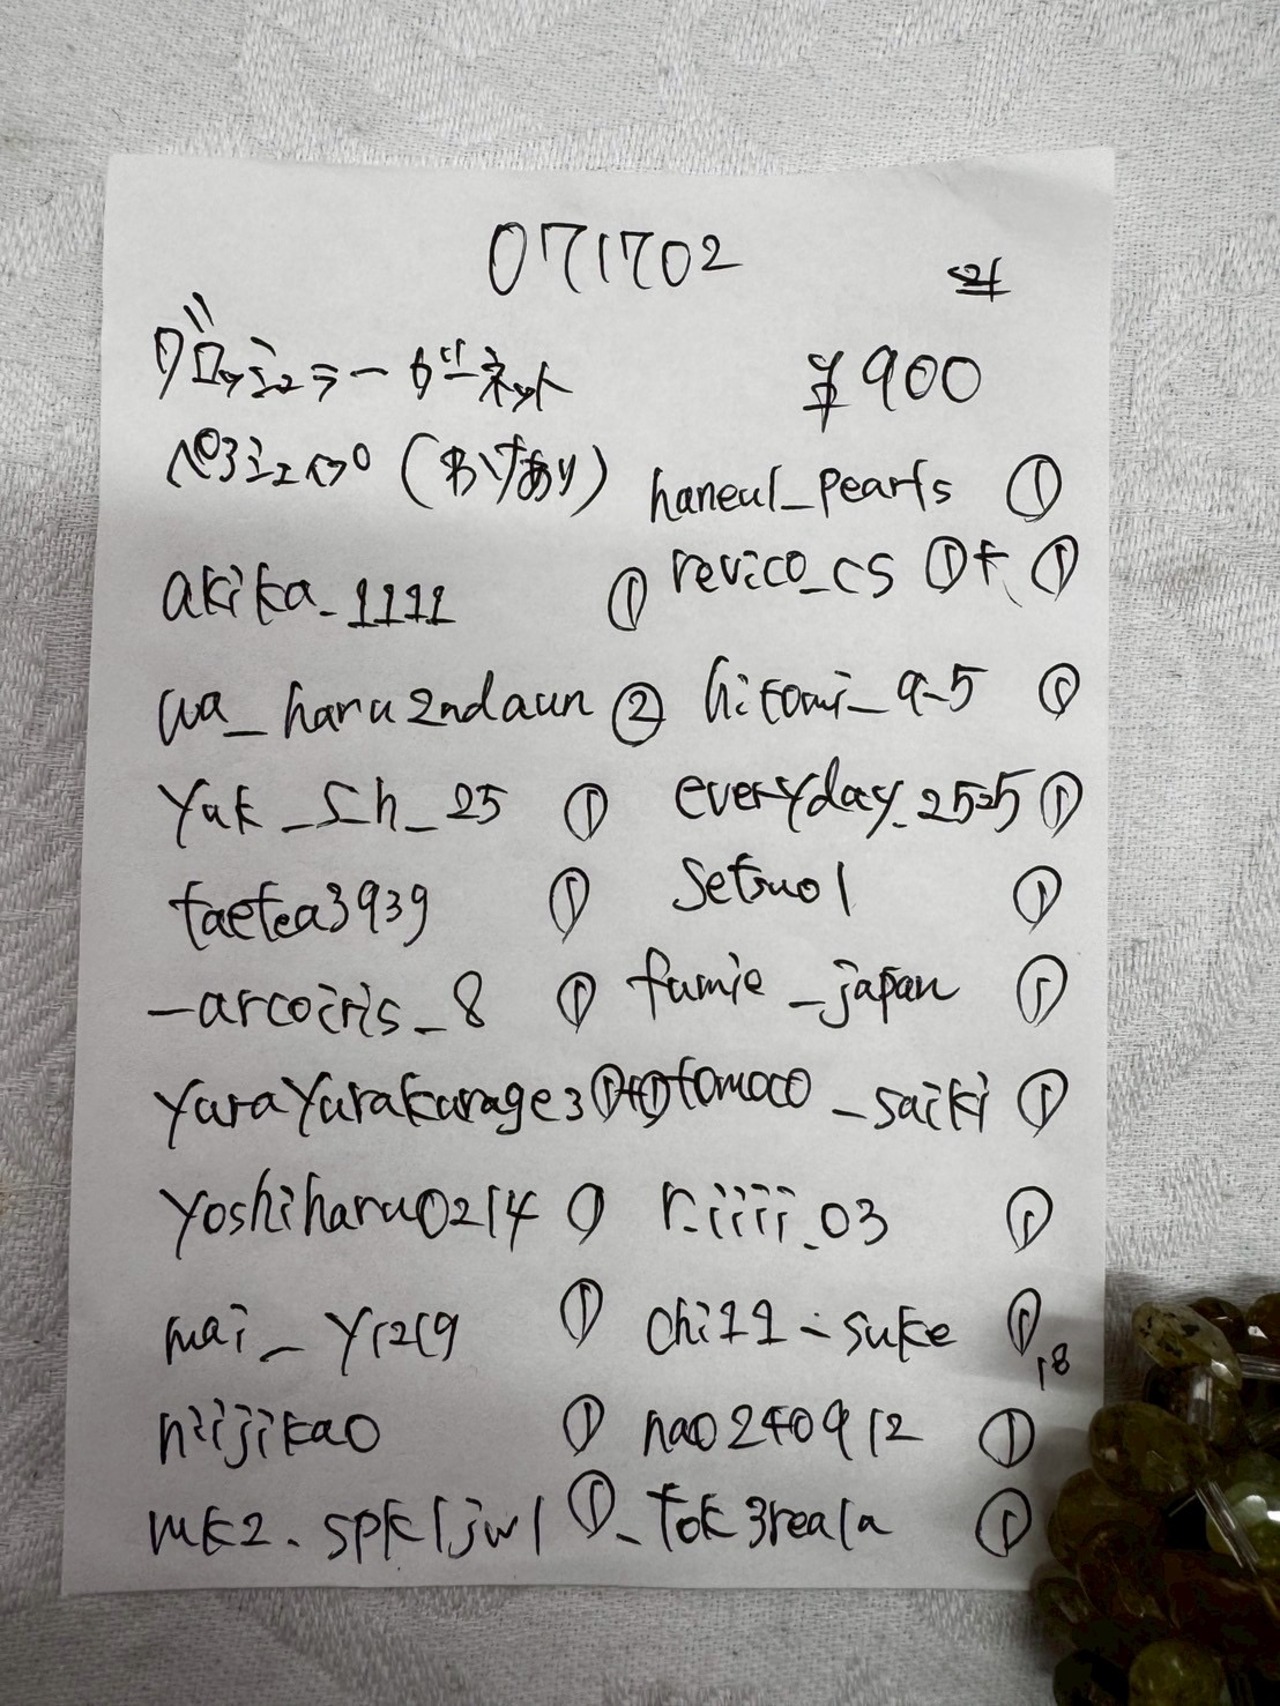 071702
グロッシュラーガーネット
¥900
ペアシェイプ(わけあり)
akika_1111 ①
wa_haru2ndaun ②
yuk_s_h_25 ①
taetea3939 ①
_arcoiris_8 ①
yurayurakurage3 ①+①
yoshiharu0214 ①
mai_y1219 ①
niijikao ①
mk2.spkljwl ①
haneul_pearls ①
revico_cs ①+①
hitomi_9_5 ①
everyday_2525 ①
setsuo1 ①
fumie_japan ①
tomoco_saiki ①
r.iiii_03 ①
chi11_suke ①
18
nao240912 ①
_tok3reala ①